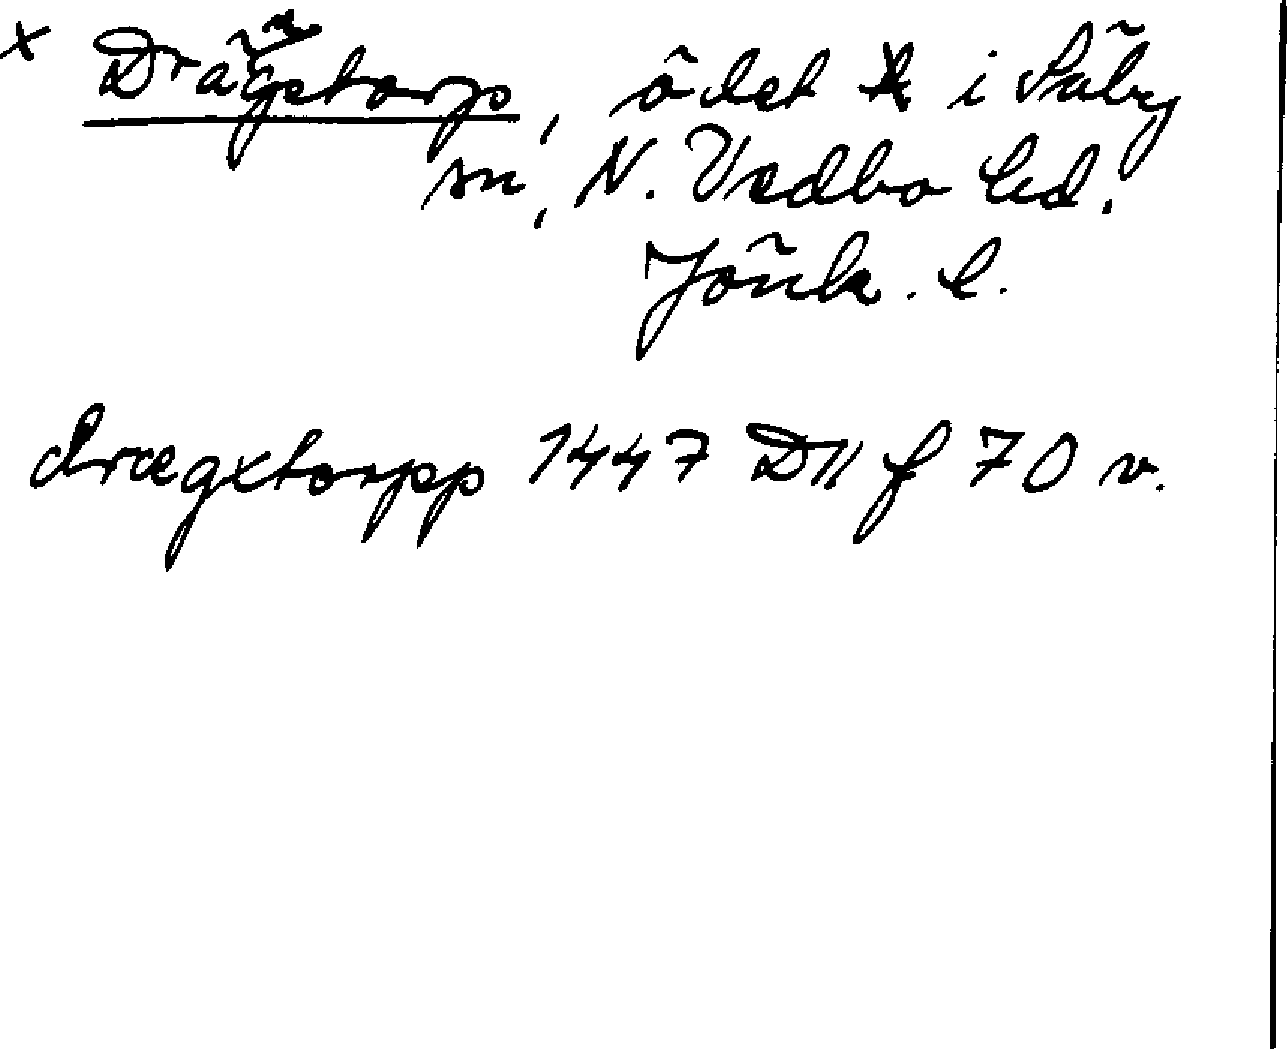 x Drägstorp, ödet i Säby
sn, N. Vedbo hd.
Jönk. l.
drægxtorpp 1447 D11 f 70 v.